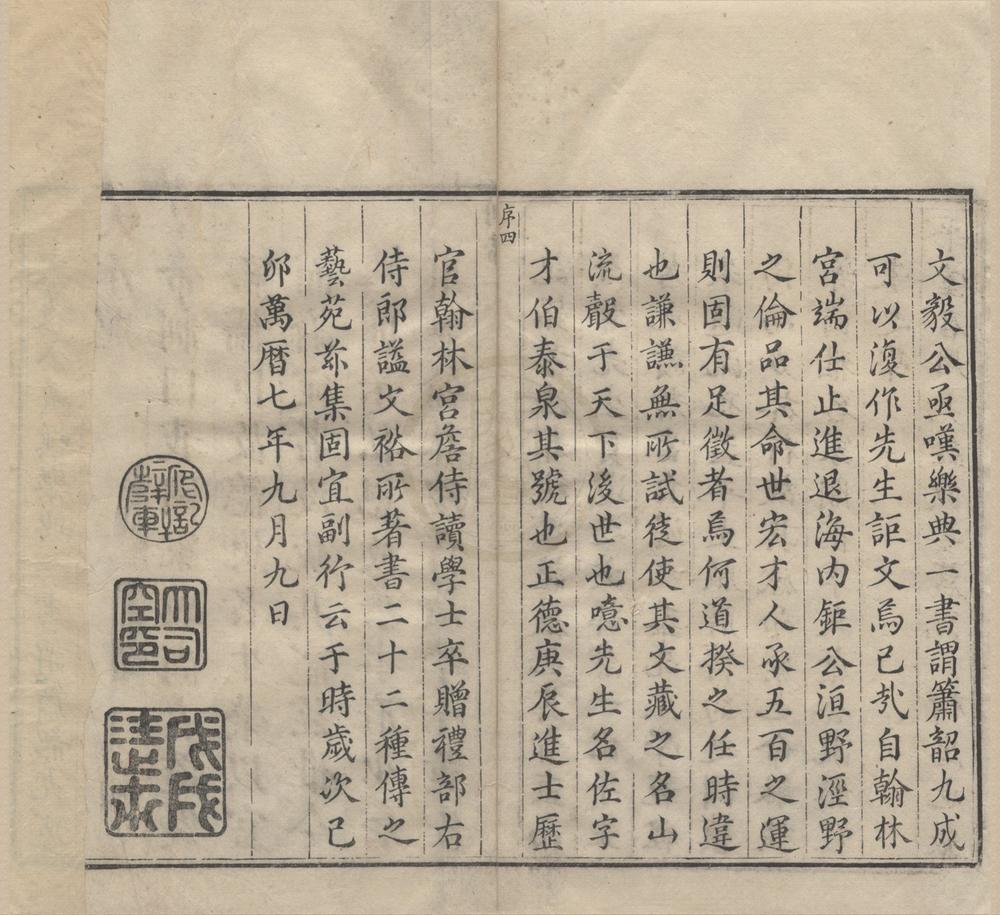 文毅公亟嘆樂典一書謂簫韶九成
可以復作先生詎文焉已㢤自翰林
宮端仕止進退海內鉅公洹野涇野
之倫品其命世宏才人承五百之運
則固有足徵者焉何道揆之任時違
也謙謙無所試徒使其文藏之名山
流聲于天下後世也噫先生名佐字
才伯泰泉其號也正德庚辰進士歷
序四
官翰林宮詹侍讀學士卒贈禮部右
侍郎謚文裕所著書二十二種傳之
藝苑茲集固宜副行云于時歲次己
卯萬曆七年九月九日
大司空印
戊戌進士